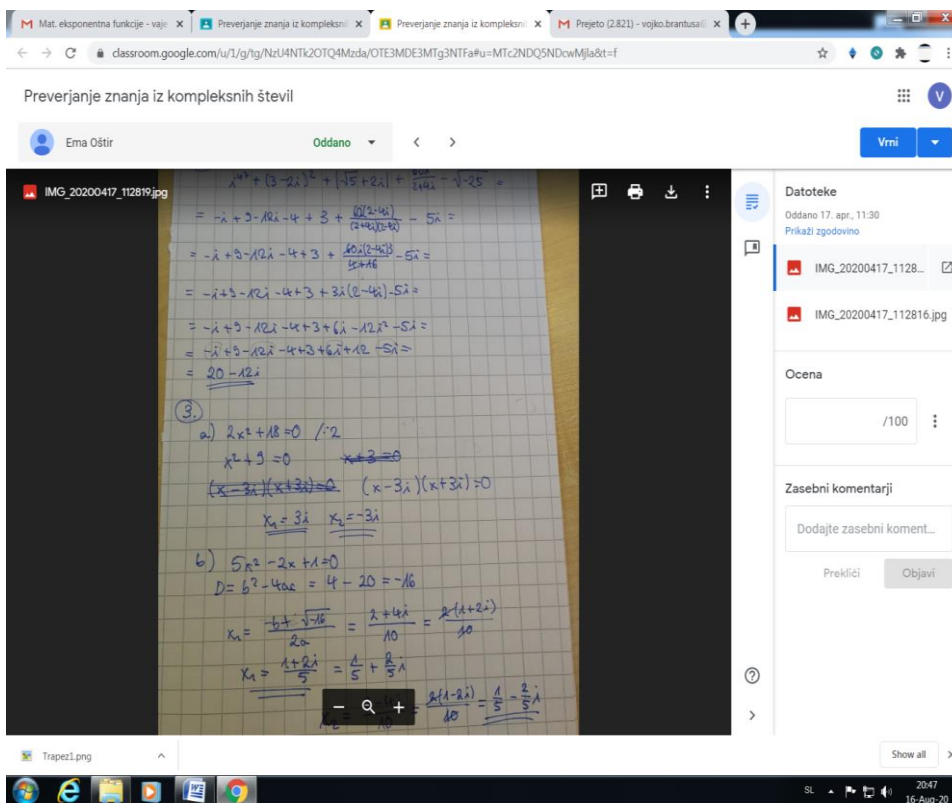 Mat. eksponentna funkcije - vaje
Preverjanje znanja iz kompleksni
Preverjanje znanja iz kompleksni
Prejeto (2.821) - vojko.brantusa
classroom.google.com/u/1/g/tg/NzU4NTk2OTQ4Mzda/OTE3MDE3MTg3NTFa#u=MTc2NDQ5NDcwMjla&t=f
Preverjanje znanja iz kompleksnih števil
V
Ema Oštir
Oddano
Vrni
IMG_20200417_112819.jpg
i⁴⁷ + (3-2i)² + |√5+2i| + 60i/(2+4i) - √-25 =
= -i+9-12i-4+3+
-5i =
= -i+9-12i-4+3+ 60i(2-4i)3/4+16 -5i=
= -i+9-12i-4+3+3i(2-4i)-5i=
= -i+9-12i-4+3+6i-12i²-5i=
= -i+9-12i-4+3+6i+12-5i=
= 20-12i
3.
a) 2x²+18=0 /:2
x²+9=0 x+3=0
(x-3i)(x+3i)=0 (x-3i)(x+3i)=0
x₁=3i x₂=-3i
b) 5x²-2x+1=0
D=b²-4ac = 4-20=-16
x₁= -b+√-16/2a = 2+4i/10 = 2(1+2i)/10
x₁= 1+2i/5 = 1/5 + 2/5i
x₂ = 2(1-2i)/10 = 1/5 - 2/5i
Datoteke
Oddano 17. apr., 11:30
Prikaži zgodovino
IMG_20200417_1128...
IMG_20200417_112816.jpg
Ocena
/100
Zasebni komentarji
Dodajte zasebni koment...
Prekliči
Objavi
Trapez1.png
Show all
SL
20:47
16-Aug-20